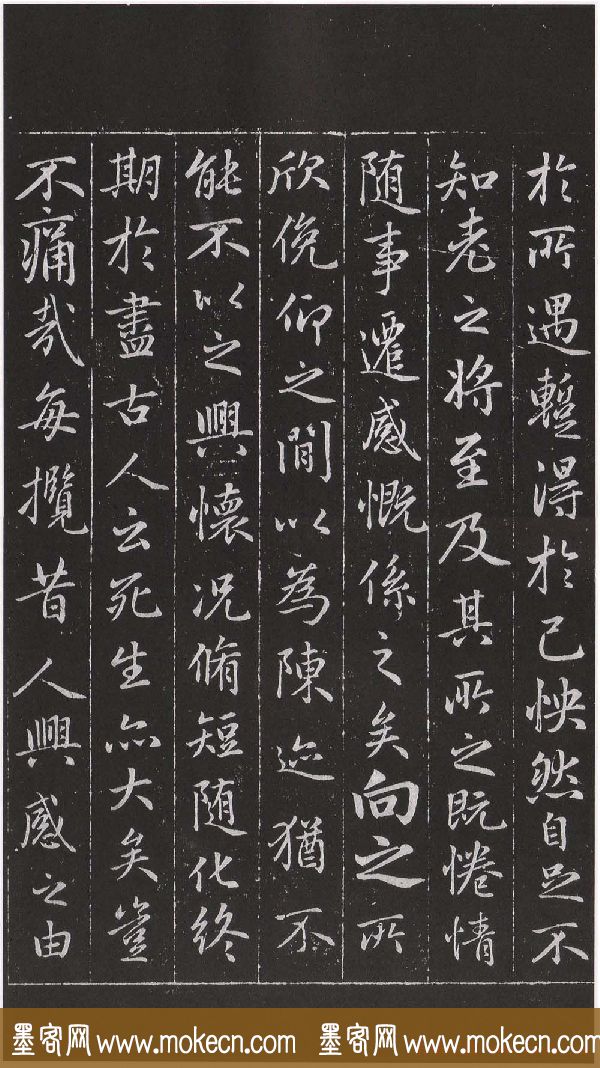 於所遇蹔得於己怏然自足不
知老之将至及其所之既惓情
随事遷感慨係之矣向之所
欣俛仰之閒以為陳迹猶不
能不以之興懷况脩短随化終
期於盡古人云死生亦大矣豈
不痛哉每攬昔人興感之由
墨客网 www.mokecn.com 墨客网 www.mokecn.com